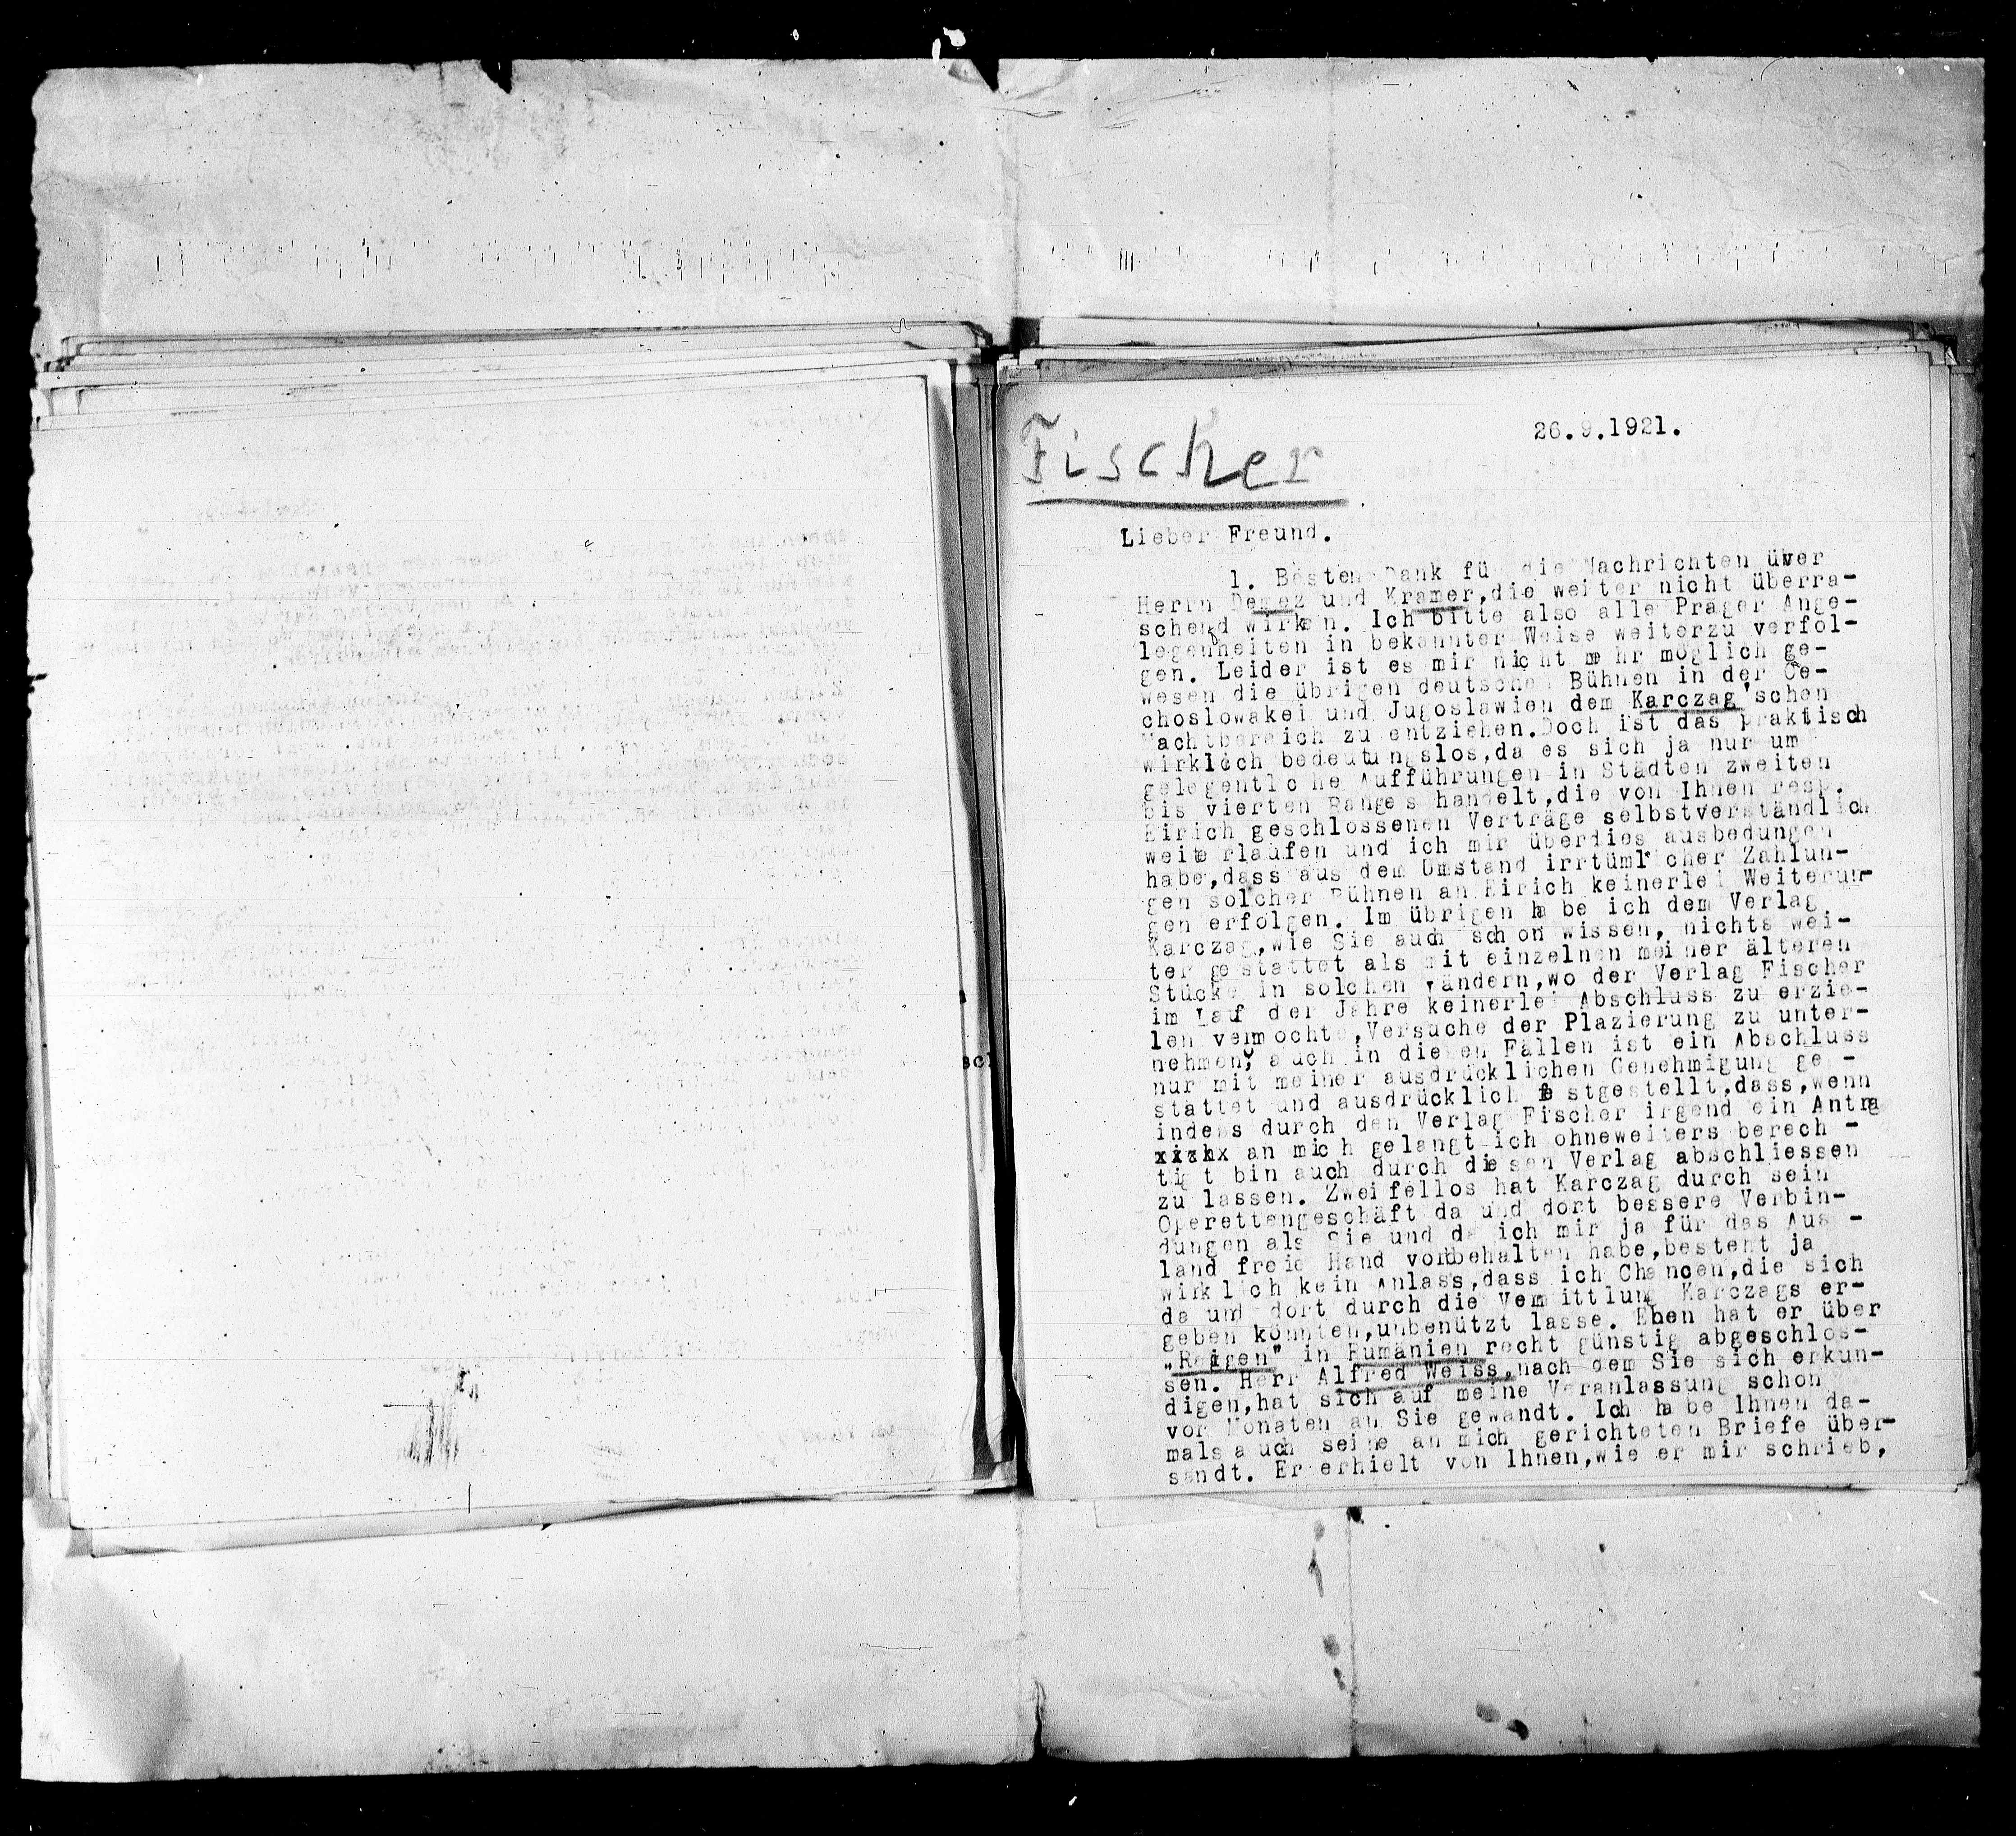 Fischer
26.9.1921.
Lieber Freund.
1. Besten Dank für die Nachrichten über
Herrn Demez und Kramer,die weiter nicht überra-
schend wirken. Ich bitte also alle Prager Ange-
legenheiten in bekannter Weise weiterzu verfol-
gen. Leider ist es mir nicht mehr möglich ge-
wesen die übrigen deutschen Bühnen in der Ce-
choslowakei und Jugoslawien dem Karczag'schen
Machtbereich zu entziehen.Doch ist das praktisch
wirklich bedeutungslos,da es sich ja nur um
gelegentliche Aufführungen in Städten zweiten
bis vierten Ranges handelt,die von Ihnen resp.
Eirich geschlossenen Verträge selbstverständlich
weiterlaufen und ich mir überdies ausbedungen
habe,dass aus dem Umstand irrtümlicher Zahlun-
gen solcher Bühnen an Eirich keinerlei Weiterun-
gen erfolgen. Im übrigen habe ich dem Verlag
Karczag,wie Sie auch schon wissen, nichts wei-
ter gestattet als mit einzelnen meiner älteren
Stücke in solchen Ländern,wo der Verlag Fischer
im Lauf der Jahre keinerlei Abschluss zu erzie-
len vermochte,Versuche der Plazierung zu unter-
nehmen; auch in diesen Fällen ist ein Abschluss
nur mit meiner ausdrücklichen Genehmigung ge -
stattet und ausdrücklich festgestellt,dass,wenn
indess durch den Verlag Fischer irgend ein Antrag
xixhx an mich gelangt ich ohneweiters berech -
tigt bin auch durch diesen Verlag abschliessen
zu lassen. Zweifellos hat Karczag durch sein
Operettengeschäft da und dort bessere Verbin-
dungen als Sie und da ich mir ja für das Aus -
land freie Hand vorbehalten habe,besteht ja
wirklich kein Anlass,dass ich Chancen,die sich
da und dort durch die Vermittlung Karczags er-
geben könnten,unbenützt lasse. Eben hat er über
„Reigen" in Rumänien recht günstig abgeschlos-
sen. Herr Alfred Weiss,nach dem Sie sich erkun-
digen,hat sich auf meine Veranlassung schon
vor Monaten an Sie gewandt. Ich habe Ihnen da-
mals auch seine an mich gerichteten Briefe über-
sandt. Er erhielt von Ihnen,wie er mir schrieb,